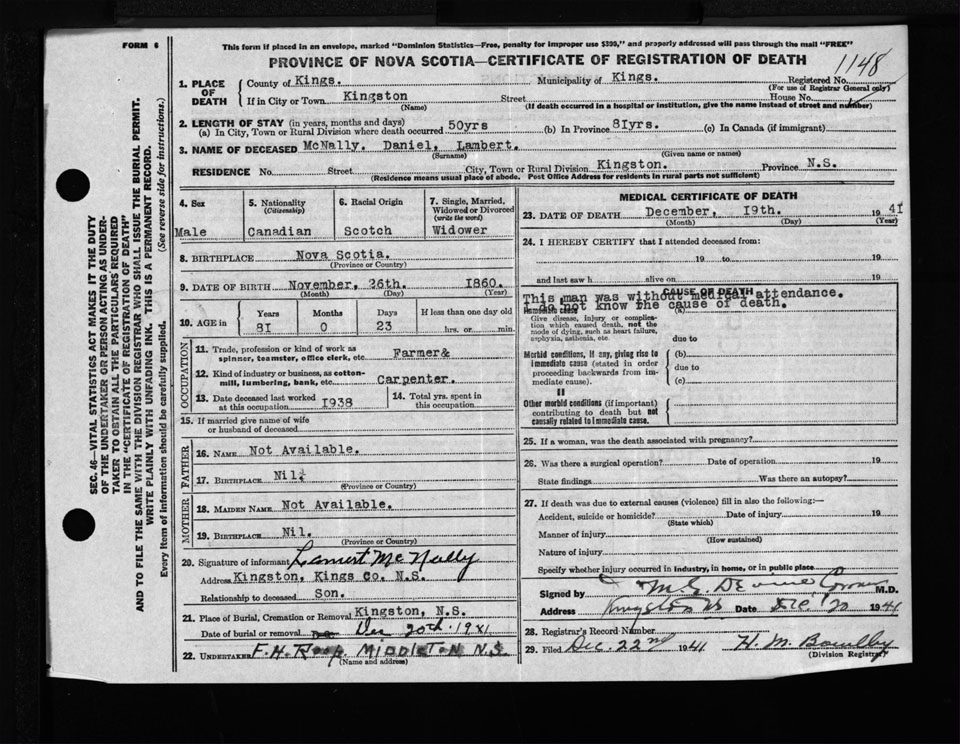 FORM 6
This form if placed in an envelope, marked "Dominion Statistics—Free, penalty for improper use $300," and properly addressed will pass through the mail "FREE"
PROVINCE OF NOVA SCOTIA—CERTIFICATE OF REGISTRATION OF DEATH
1148
1. PLACE OF DEATH
County of Kings. Municipality of Kings. Registered No.
(For use of Registrar General only)
If in City or Town Kingston Street House No.
(Name) (If death occurred in a hospital or institution, give the name instead of street and number)
2. LENGTH OF STAY (in years, months and days)
(a) In City, Town or Rural Division where death occurred 50yrs (b) In Province 81yrs. (c) In Canada (if immigrant)
3. NAME OF DECEASED McNally. Daniel, Lambert.
(Surname) (Given name or names)
RESIDENCE No. Street City, Town or Rural Division Kingston. Province N.S.
(Residence means usual place of abode. Post Office Address for residents in rural parts not sufficient)
4. Sex
Male
5. Nationality
(Citizenship)
Canadian
6. Racial Origin
Scotch
7. Single, Married, Widowed or Divorced
(write the word)
Widower
8. BIRTHPLACE Nova Scotia.
(Province or Country)
9. DATE OF BIRTH November, 26th. 1860.
(Month) (Day) (Year)
10. AGE in
Years Months Days If less than one day old
81 0 23 hrs. or min.
OCCUPATION
11. Trade, profession or kind of work as
spinner, teamster, office clerk, etc. Farmer&
12. Kind of industry or business, as cotton-
mill, lumbering, bank, etc. Carpenter.
13. Date deceased last worked
at this occupation 1938
14. Total yrs. spent in
this occupation
15. If married give name of wife
or husband of deceased
FATHER
16. NAME Not Available.
17. BIRTHPLACE Nil.
(Province or Country)
MOTHER
18. MAIDEN NAME Not Available.
19. BIRTHPLACE Nil.
(Province or Country)
20. Signature of informant Lamert McNally
Address Kingston, Kings Co. N.S.
Relationship to deceased Son.
21. Place of Burial, Cremation or Removal Kingston, N.S.
Date of burial or removal Dec 20th. 1941
22. UNDERTAKER F.H. MIDDLETON N.S.
(Name and address)
MEDICAL CERTIFICATE OF DEATH
23. DATE OF DEATH December, 19th. 1941
(Month) (Day) (Year)
24. I HEREBY CERTIFY that I attended deceased from:
19 to 19
and last saw h alive on 19
CAUSE OF DEATH
This man was without medical attendance.
I do not know the cause of death.
Immediate cause (a)
Give disease, injury or complica-
tion which caused death, not the
mode of dying, such as heart failure,
asphyxia, asthenia, etc. due to
Morbid conditions, if any, giving rise to
immediate cause (stated in order
proceeding backwards from im-
mediate cause).
(b)
due to
(c)
II
Other morbid conditions (if important)
contributing to death but not
causally related to immediate cause.
25. If a woman, was the death associated with pregnancy?
26. Was there a surgical operation? Date of operation 19
State findings Was there an autopsy?
27. If death was due to external causes (violence) fill in also the following:—
Accident, suicide or homicide? Date of injury 19
(State which)
Manner of injury
(How sustained)
Nature of injury
Specify whether injury occurred in industry, in home, or in public place
Signed by M.D.
Address Kingston NS Date Dec 20 1941
28. Registrar's Record Number
29. Filed Dec. 22nd 1941 H. M.
(Division Registrar)
SEC. 46—VITAL STATISTICS ACT MAKES IT THE DUTY
OF THE UNDERTAKER OR PERSON ACTING AS UNDER-
TAKER TO OBTAIN ALL THE PARTICULARS REQUIRED
IN THE "CERTIFICATE OF REGISTRATION OF DEATH"
AND TO FILE THE SAME WITH THE DIVISION REGISTRAR WHO SHALL ISSUE THE BURIAL PERMIT.
WRITE PLAINLY WITH UNFADING INK. THIS IS A PERMANENT RECORD.
Every item of information should be carefully supplied. (See reverse side for instructions.)